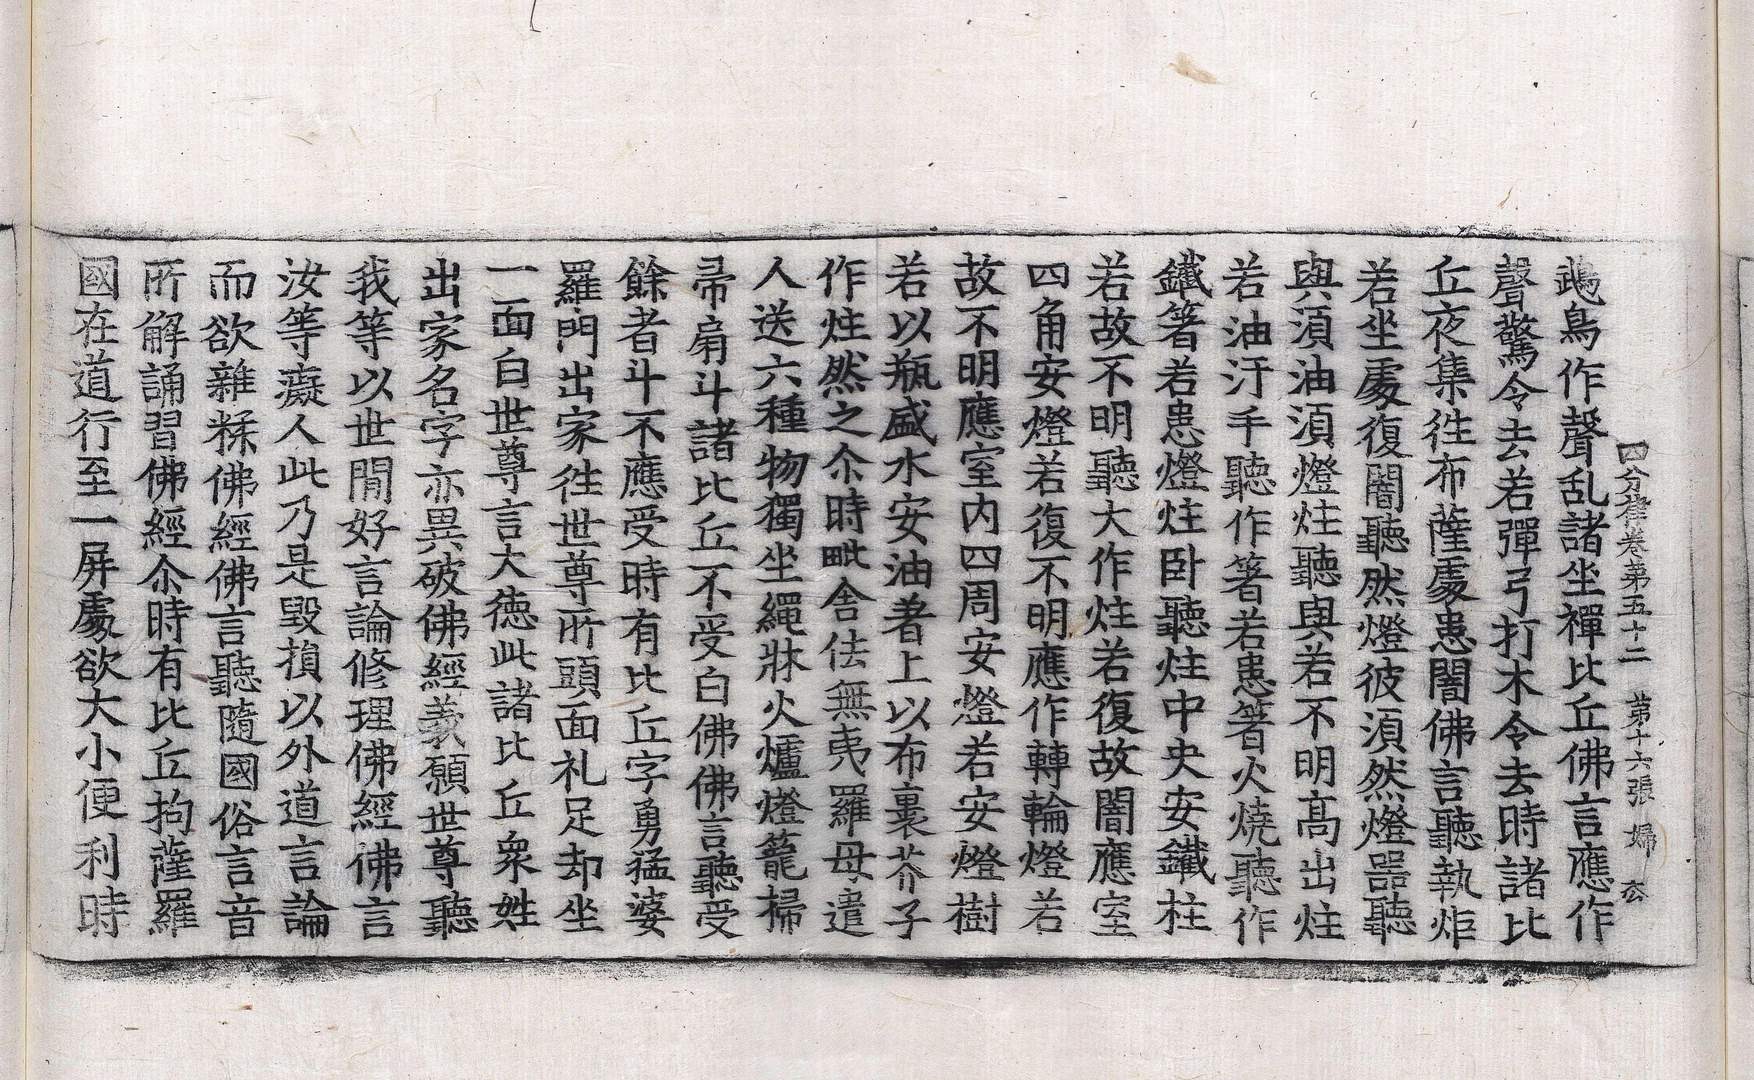 四分律卷第五十二 第十六張 婦
鵡鳥作聲乱諸坐禪比丘佛言應作
聲驚令去若彈弓打木令去時諸比
丘夜集徃布薩處患闇佛言聽執炬
若坐處復闇聽然燈彼須然燈器聽
與須油須燈炷聽與若不明高出炷
若油汙手聽作箸若患箸火燒聽作
鐵箸若患燈炷卧聽炷中央安鐵柱
若故不明聽大作炷若復故闇應室
四角安燈若復不明應作轉輪燈若
故不明應室内四周安燈若安燈樹
若以瓶盛水安油著上以布裹芥子
作炷然之尒時毗舍佉無夷羅母遣
人送六種物獨坐繩牀火爐燈籠掃
帚扇斗諸比丘不受白佛佛言聽受
餘者斗不應受時有比丘字勇猛婆
羅門出家徃世尊所頭面礼足却坐
一面白世尊言大德此諸比丘衆姓
出家名字亦異破佛經義願世尊聽
我等以世閒好言論修理佛經佛言
汝等癡人此乃是毀損以外道言論
而欲雜糅佛經佛言聽隨國俗言音
所解誦習佛經尒時有比丘拘薩羅
國在道行至一屏處欲大小便利時